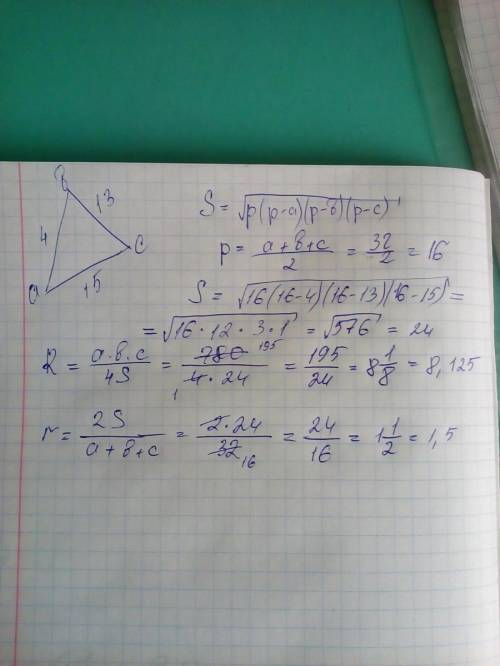 B
13
4
C
a
15
S = √p(p-a)(p-b)(p-c)
p = (a+b+c)/2 = 32/2 = 16
S = √16(16-4)(16-13)(16-15) =
= √16·12·3·1 = √576 = 24
R = (a·b·c)/4S = 780/(4·24) 195 1 = 195/24 = 8 1/8 = 8,125
r = 2S/(a+b+c) = (2·24)/32 16 = 24/16 = 1 1/2 = 1,5